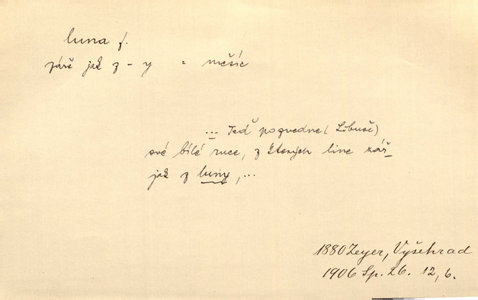 luna f.
zář jak z - y = měsíc
... Teď pozvedne (Libuše)
své bílé ruce, z kterých line zář
jak z luny, ...
1880 Zeyer, Vyšehrad
1906 Sp. 26. 12, 6.